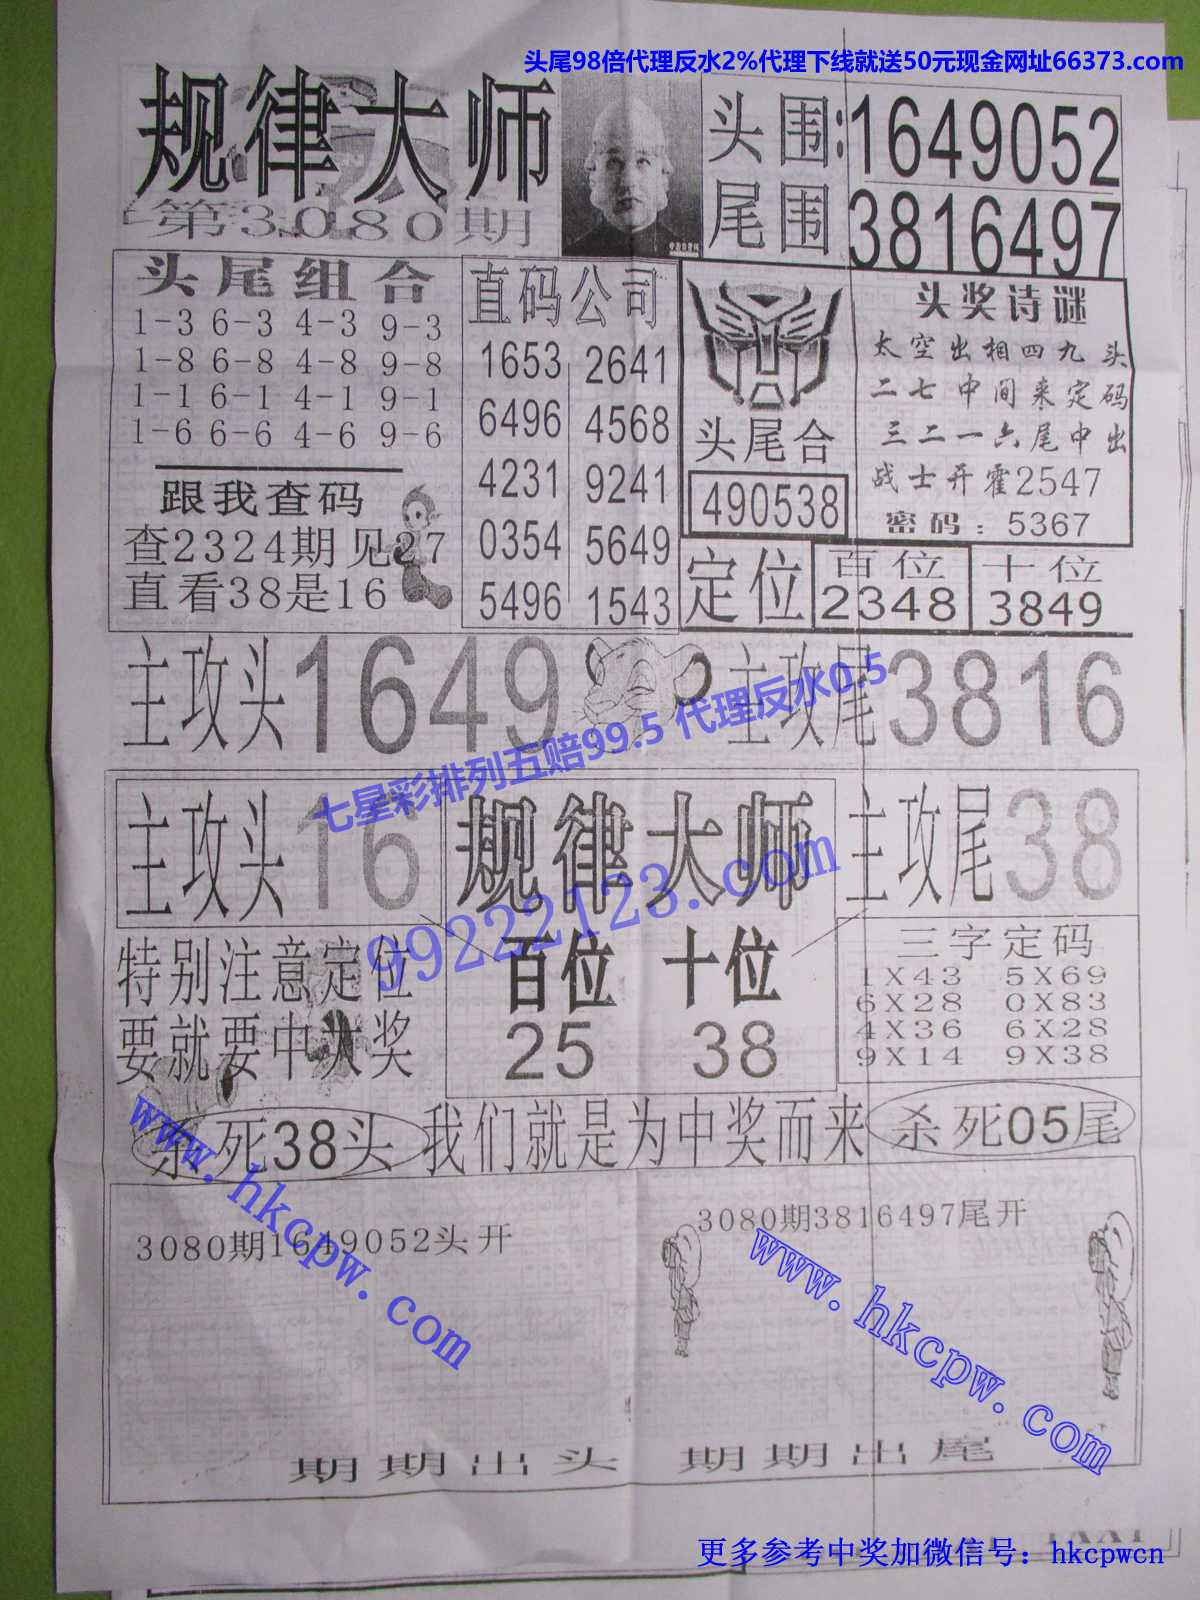 头尾98倍代理反水2%代理下线就送50元现金网址66373.com
规律大师
第3080期
头围:1649052
尾围3816497
头尾组合
1-3 6-3 4-3 9-3
1-8 6-8 4-8 9-8
1-1 6-1 4-1 9-1
1-6 6-6 4-6 9-6
跟我查码
查2324期见27
直看38是16
直码公司
1653 2641
6496 4568
4231 9241
0354 5649
5496 1543
头尾合
490538
头奖诗谜
太空出相四九头
二七中间来定码
三二一六尾中出
战士开霍2547
密码:5367
定位
百位
2348
十位
3849
主攻头1649
主攻尾3816
七星彩排列五赔99.5 代理反水0.5
主攻头16
规律大师
主攻尾38
99222123.com
特别注意定位
要就要中大奖
百位 十位
25 38
三字定码
1X43 5X69
6X28 0X83
4X36 6X28
9X14 9X38
杀死38头
我们就是为中奖而来
杀死05尾
www.hkcpw.com
3080期1649052头开
3080期3816497尾开
www.hkcpw.com
期期出头 期期出尾
更多参考中奖加微信号：hkcpwcn